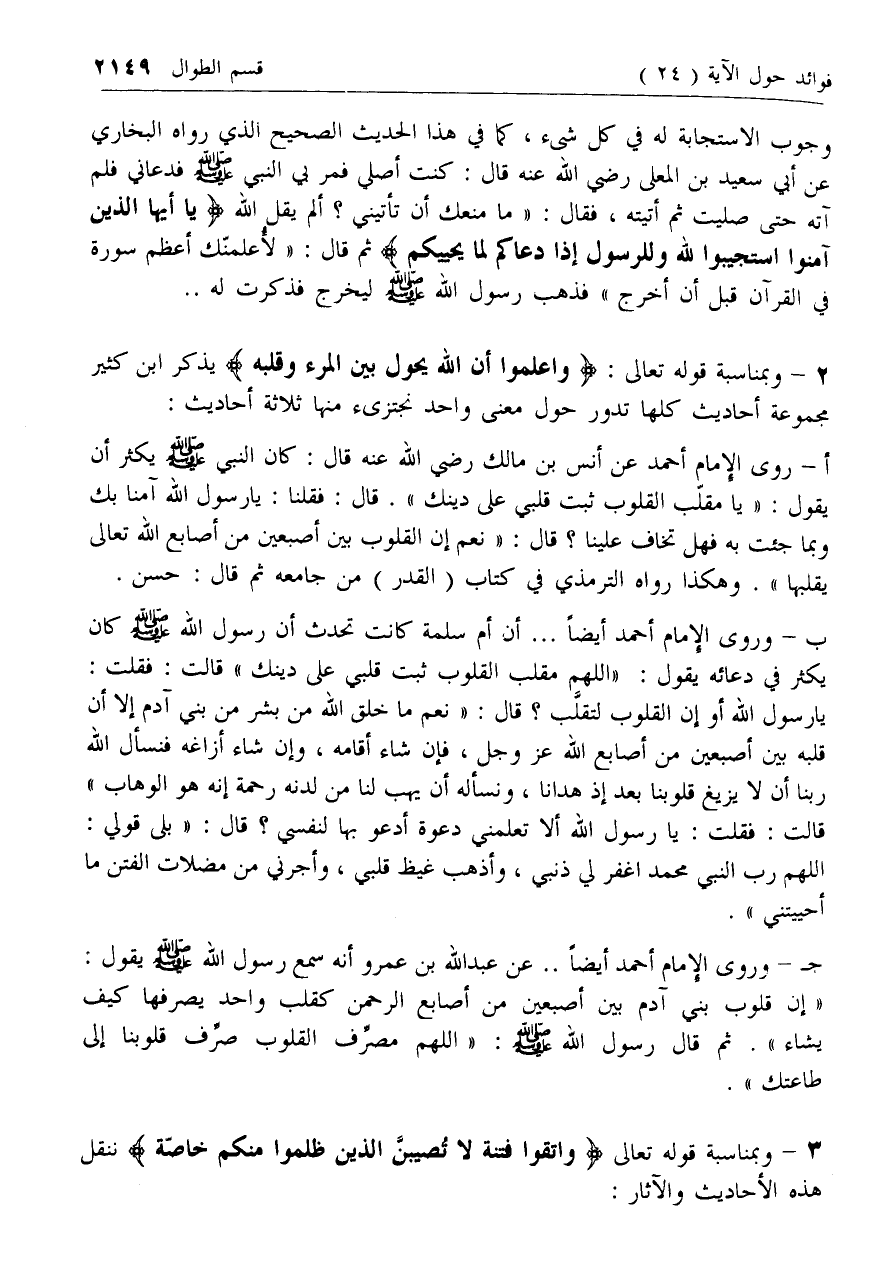 فوائد حول الآية ( ٢٤ )
قسم الطوال ٢١٤٩
وجوب الاستجابة له في كل شيء ، كما في هذا الحديث الصحيح الذي رواه البخاري
عن أبي سعيد بن المعلى رضي الله عنه قال : كنت أصلي فمر بي النبي ﷺ فدعاني فلم
آته حتى صليت ثم أتيته ، فقال : « ما منعك أن تأتيني ؟ ألم يقل الله ﴿ يا أيها الذين
آمنوا استجيبوا لله وللرسول إذا دعاكم لما يحييكم ﴾ ثم قال : « لأعلمنّك أعظم سورة
في القرآن قبل أن أخرج » فذهب رسول الله ﷺ ليخرج فذكرت له ..
٢ – وبمناسبة قوله تعالى : ﴿ واعلموا أن الله يحول بين المرء وقلبه ﴾ يذكر ابن كثير
مجموعة أحاديث كلها تدور حول معنى واحد نجتزىء منها ثلاثة أحاديث :
أ – روى الإمام أحمد عن أنس بن مالك رضي الله عنه قال : كان النبي ﷺ يكثر أن
يقول : « يا مقلّب القلوب ثبت قلبي على دينك » . قال : فقلنا : يارسول الله آمنا بك
وبما جئت به فهل تخاف علينا ؟ قال : « نعم إن القلوب بين أصبعين من أصابع الله تعالى
يقلبها » . وهكذا رواه الترمذي في كتاب ( القدر ) من جامعه ثم قال : حسن .
ب – وروى الإمام أحمد أيضاً ... أن أم سلمة كانت تحدث أن رسول الله ﷺ كان
يكثر في دعائه يقول : «اللهم مقلب القلوب ثبت قلبي على دينك » قالت : فقلت :
يارسول الله أو إن القلوب لتقلَّب ؟ قال : « نعم ما خلق الله من بشر من بني آدم إلا أن
قلبه بين أصبعين من أصابع الله عز وجل ، فإن شاء أقامه ، وإن شاء أزاغه فنسأل الله
ربنا أن لا يزيغ قلوبنا بعد إذ هدانا ، ونسأله أن يهب لنا من لدنه رحمة إنه هو الوهاب »
قالت : فقلت : يا رسول الله ألا تعلمني دعوة أدعو بها لنفسي ؟ قال : « بلى قولي :
اللهم رب النبي محمد اغفر لي ذنبي ، وأذهب غيظ قلبي ، وأجرني من مضلات الفتن ما
أحييتني » .
جـ – وروى الإمام أحمد أيضاً .. عن عبدالله بن عمرو أنه سمع رسول الله ﷺ يقول :
« إن قلوب بني آدم بين أصبعين من أصابع الرحمن كقلب واحد يصرفها كيف
يشاء » . ثم قال رسول الله ﷺ : « اللهم مصرِّف القلوب صرِّف قلوبنا إلى
طاعتك » .
٣ – وبمناسبة قوله تعالى ﴿ واتقوا فتنة لا تُصيبنَّ الذين ظلموا منكم خاصّة ﴾ ننقل
هذه الأحاديث والآثار :